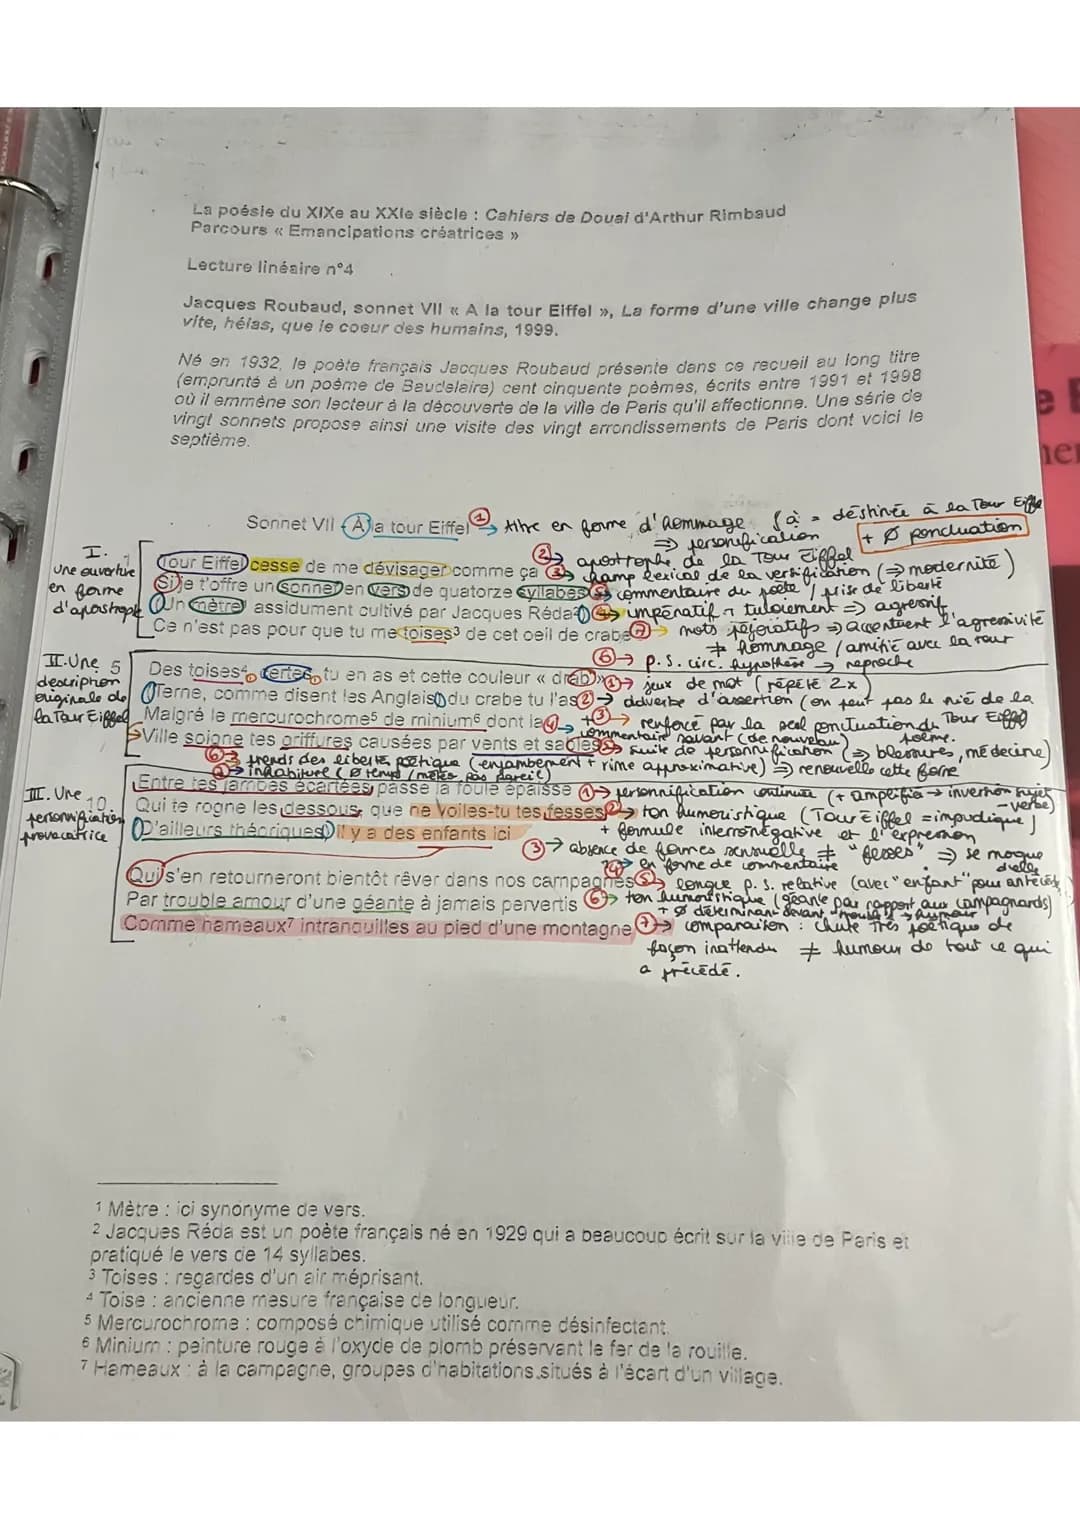 La poésie du XIXe au XXIe siècle : Cahiers de Douai d'Arthur Rimbaud
Parcours « Emancipations créatrices »
Lecture linéaire n°4
Jacques Roubaud, sonnet VII « A la tour Eiffel », La forme d'une ville change plus
vite, hélas, que le coeur des humains, 1999.
Né en 1932, le poète français Jacques Roubaud présente dans ce recueil au long titre
(emprunté à un poème de Baudelaire) cent cinquante poèmes, écrits entre 1991 et 1998
où il emmène son lecteur à la découverte de la ville de Paris qu'il affectionne. Une série de
vingt sonnets propose ainsi une visite des vingt arrondissements de Paris dont voici le
septième.
Sonnet VII - À la tour Eiffel ① → titre en forme d'hommage (à = déstinée à la Tour Eiffel
⇒ personification + Ø ponctuation
I. Une ouverture en forme d'apostrophe
Tour Eiffel cesse de me dévisager comme ça ② → apostrophe de la Tour Eiffel
③ → champ lexical de la versification (⇒ modernité)
Si je t'offre un sonnet en vers de quatorze syllabes ⑤ → commentaire du poète / prise de liberté
(Un mètre¹ assidument cultivé par Jacques Réda²) ④ → impératif + tutoiement ⇒ agressif
Ce n'est pas pour que tu me toises³ de cet oeil de crabe ⑦ → mots péjoratifs ⇒ accentuent l'agressivité
≠ hommage / amitié avec la tour
⑥ → p.s. circ. hypothèse → reproche
II. Une description originale de la Tour Eiffel
5
Des toises⁴, certes, tu en as et cette couleur « drab » ① → jeux de mot (répété 2x)
(Terne, comme disent les Anglais) du crabe tu l'as ② → adverbe d'assertion (on peut pas le nié de la Tour Eiffel
Malgré le mercurochrome⁵ de minium⁶ dont la ④ → + ③ → renforcé par la seul ponctuation du poème.
commentaire savant (de nouveau)
Ville soigne tes griffures causées par vents et sables ⑤ → suite de personnification (⇒ blessures, médecine)
⑥ → prends des libertés poétique (enjambement + rime approximative) ⇒ renouvelle cette forme
III. Une personnification provocatrice
Entre tes jambes écartées, passe la foule épaisse ① → personnification continue (+ amplifié → inversion sujet - verbe)
10.
Qui te rogne les dessous, que ne voiles-tu tes fesses ② → ton humoristique (Tour Eiffel = impudique)
+ formule interronégative et l'expression
(D'ailleurs théoriques) il y a des enfants ici
③ → absence de formes sensuelle ≠ "fesses" ⇒ se moque d'elle
④ → en forme de commentaire
Qui s'en retourneront bientôt rêver dans nos campagnes ⑤ → longue p.s. relative (avec "enfant" pour antécédent)
Par trouble amour d'une géante à jamais pervertis ⑥ → ton humoristique (géante par rapport aux campagnards)
+ Ø déterminant devant "trouble" → humour
Comme hameaux⁷ intranquilles au pied d'une montagne ⑦ → comparaison : chute très poétique de
façon inattendu ≠ humour de tout ce qui
a précédé.
1 Mètre : ici synonyme de vers.
2 Jacques Réda est un poète français né en 1929 qui a beaucoup écrit sur la ville de Paris et
pratiqué le vers de 14 syllabes.
3 Toises : regardes d'un air méprisant.
4 Toise : ancienne mesure française de longueur.
5 Mercurochrome : composé chimique utilisé comme désinfectant.
6 Minium : peinture rouge à l'oxyde de plomb préservant le fer de la rouille.
7 Hameaux : à la campagne, groupes d'habitations situés à l'écart d'un village.